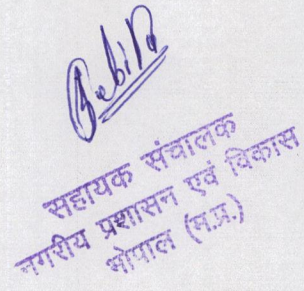 सहायक संचालक
नगरीय प्रशासन एवं विकास
भोपाल (म.प्र.)